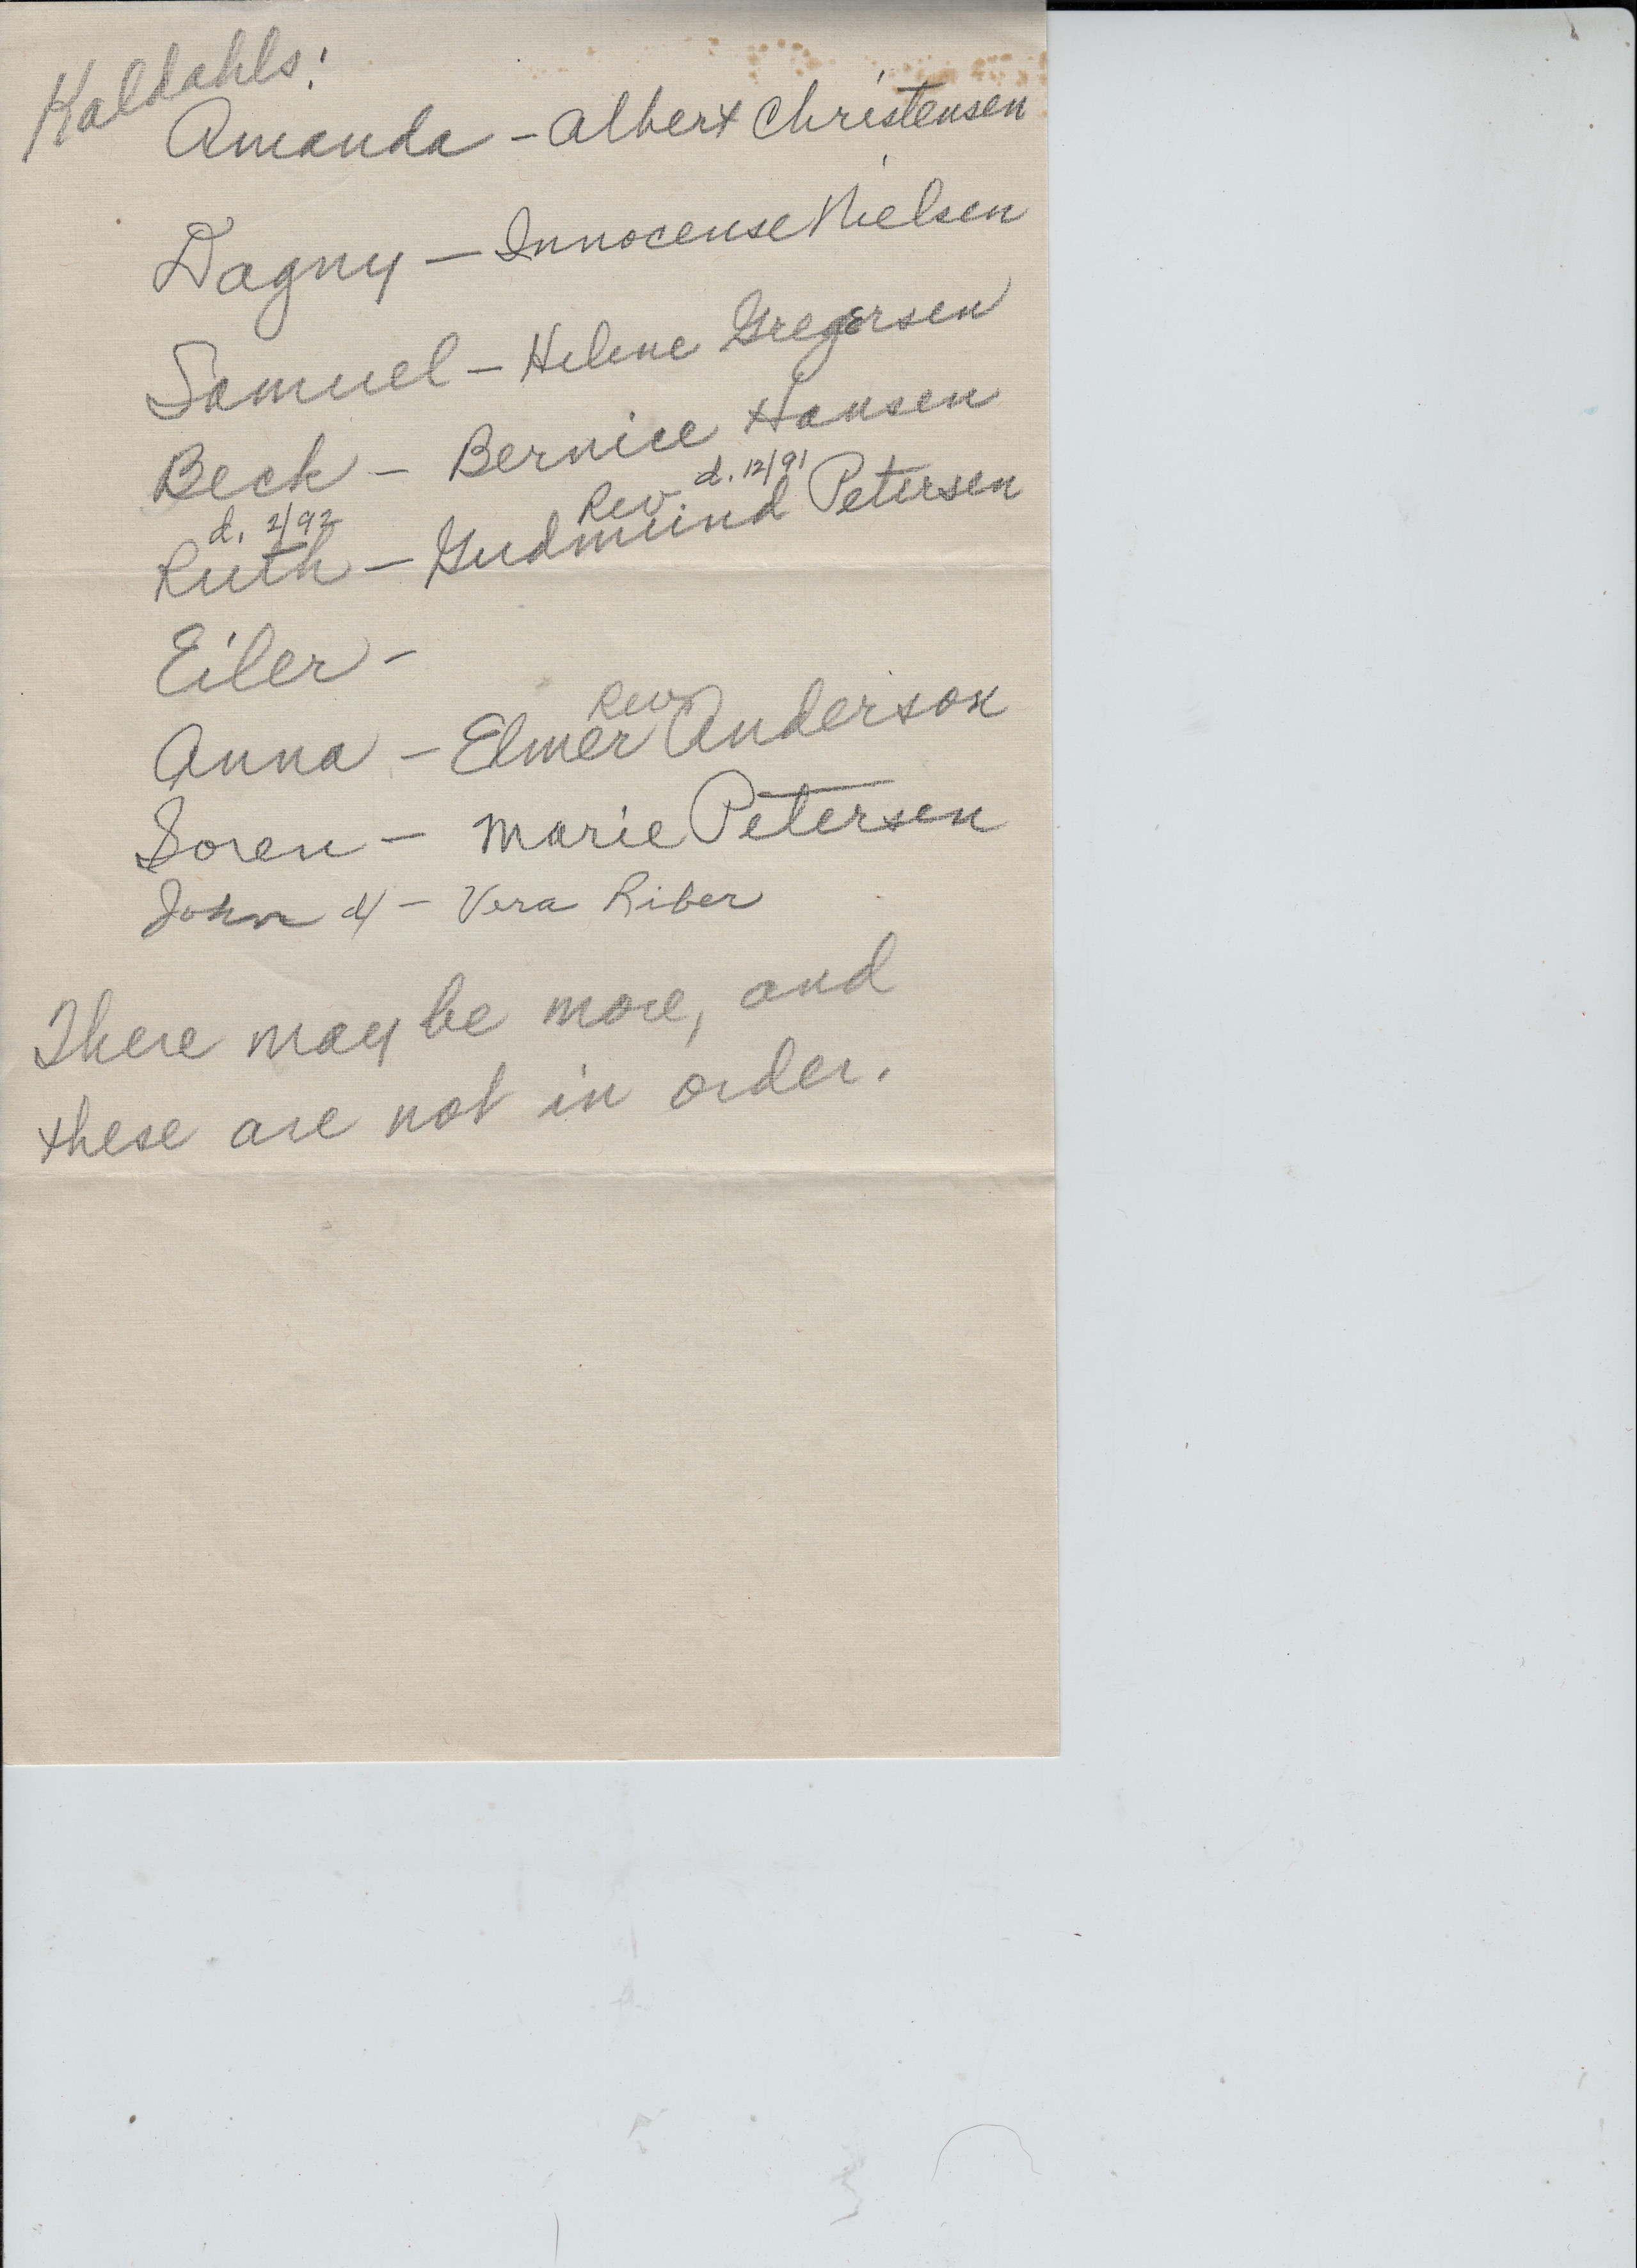 Kaldahls:
Amanda - Albert Christensen
Dagny - Innocense Nielsen
Samuel - Helene Gregersen
Beck - Bernice Hansen
d. 2/92 Rev. d. 12/91
Ruth - Gudmund Petersen
Eiler -
Rev.
Anna - Elmer Anderson
Soren - Marie Petersen
John - Vera Riber
There may be more, and
these are not in order.